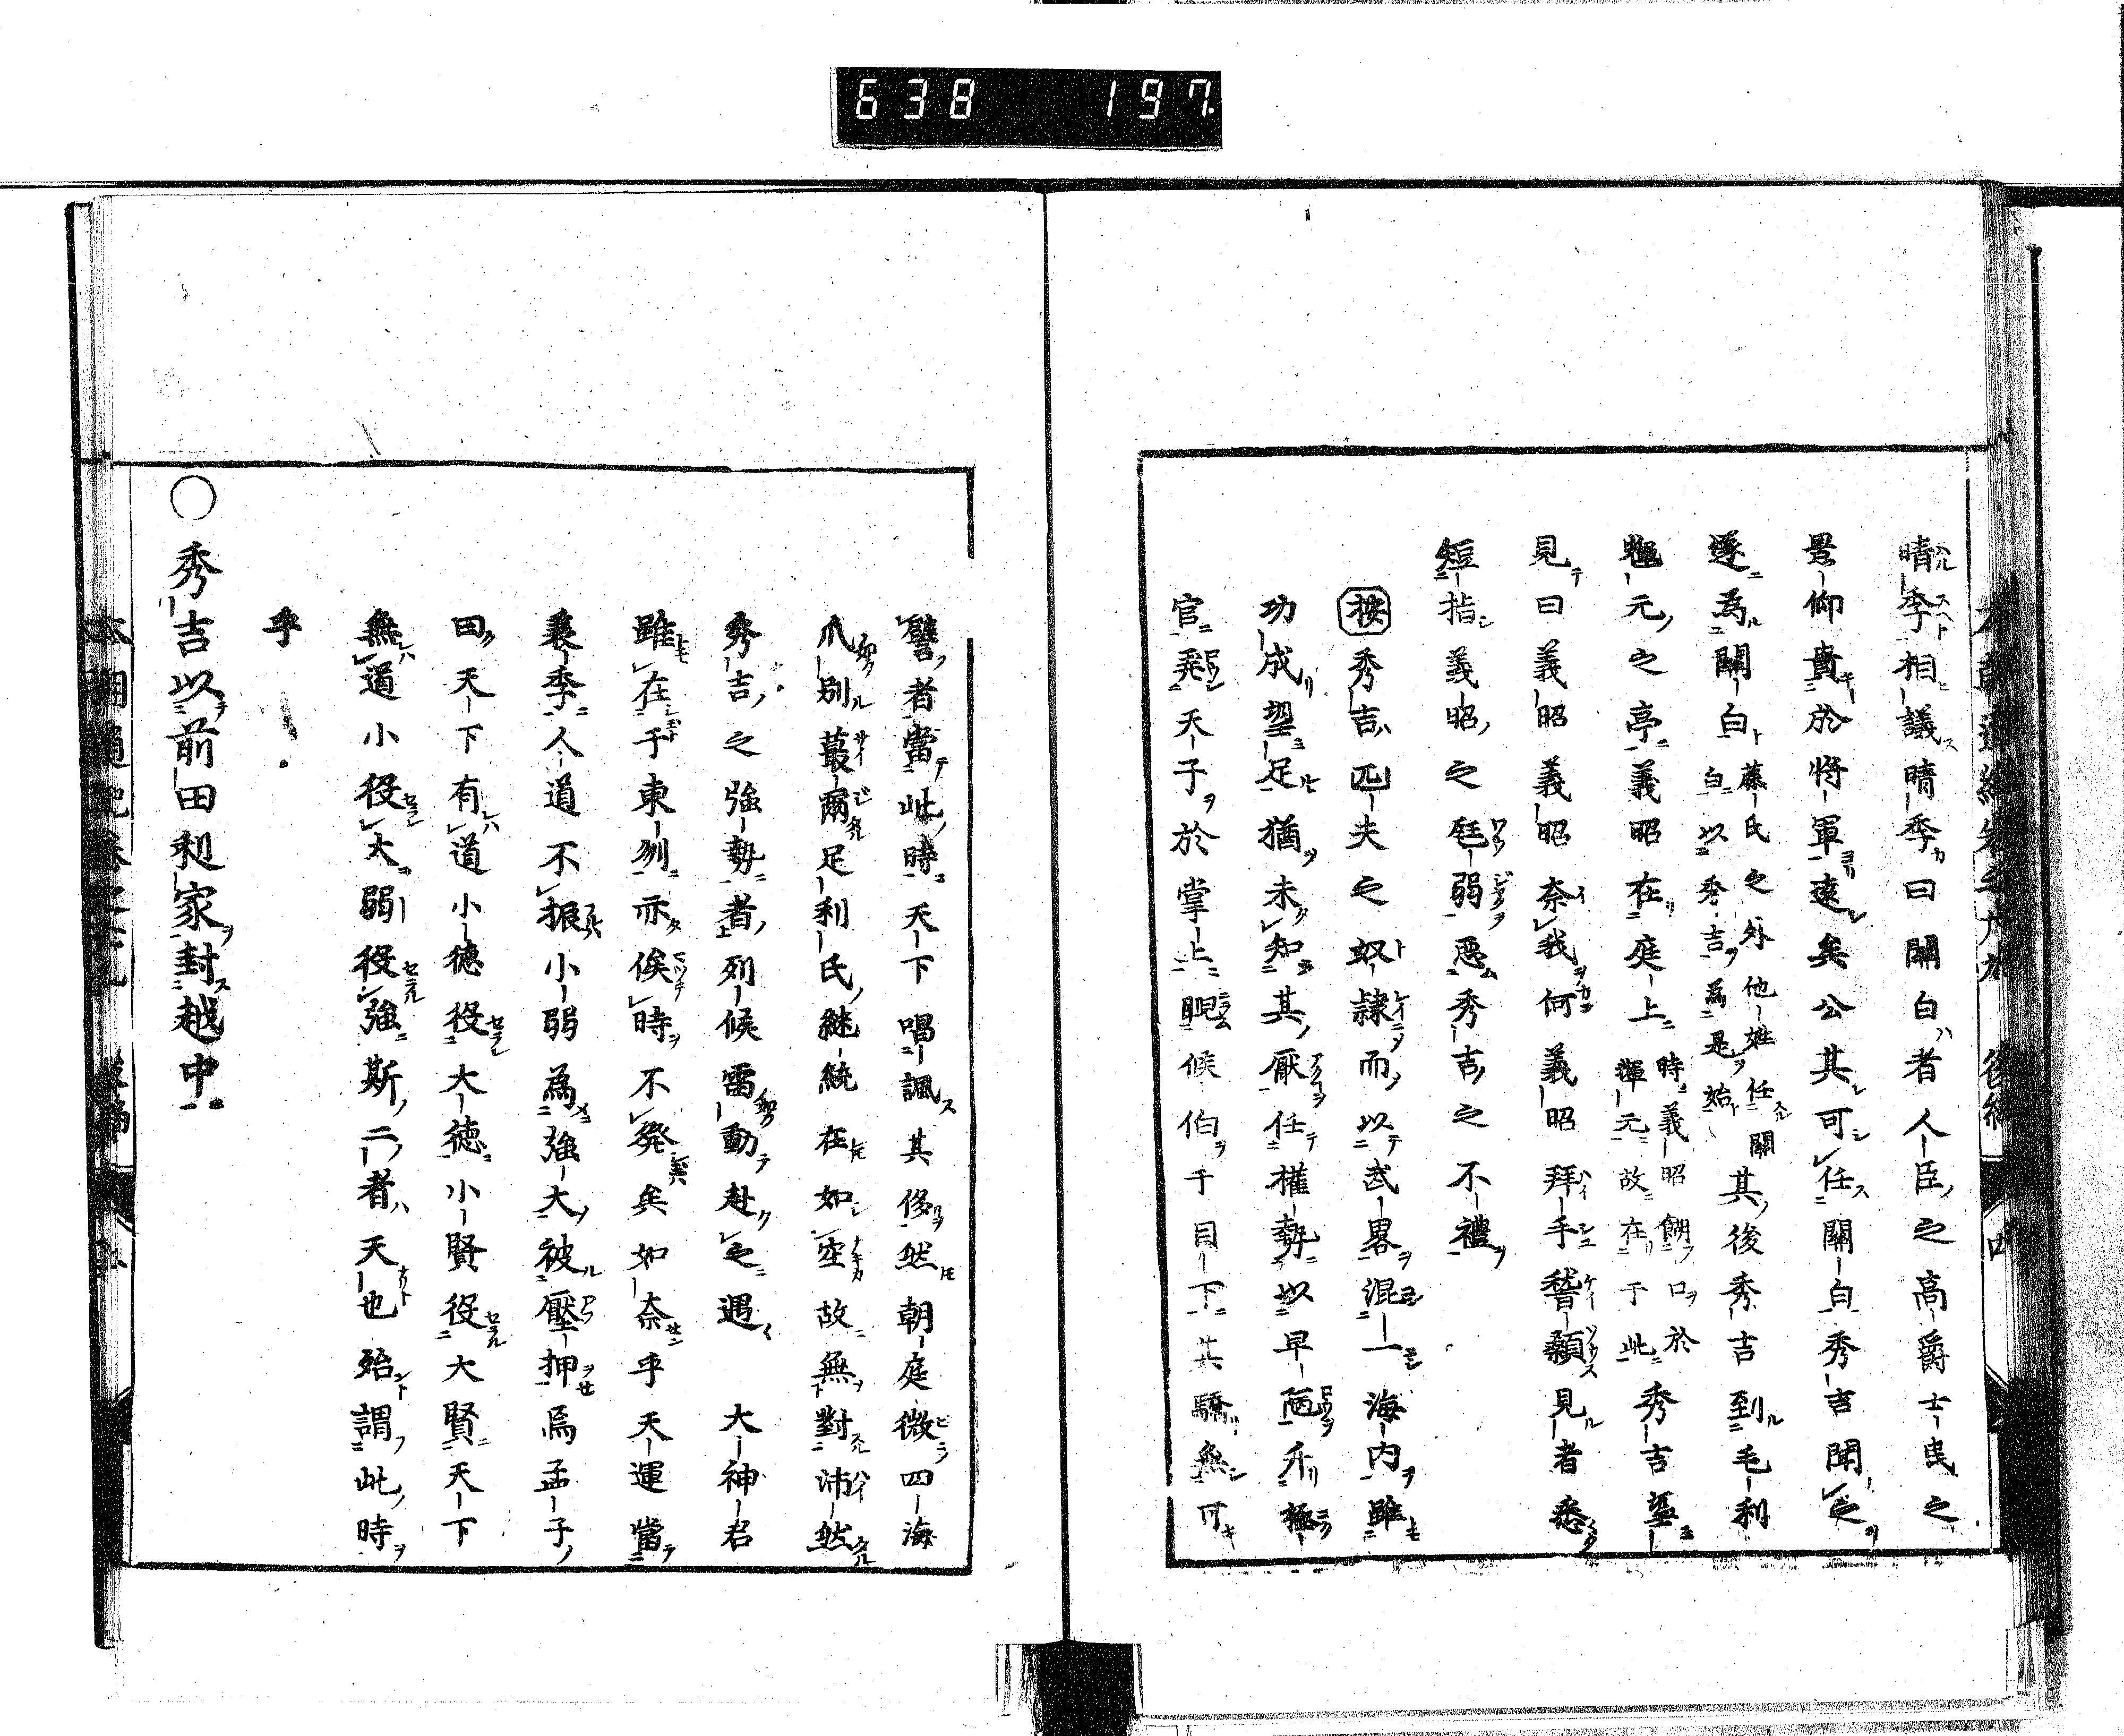 638 197
晴季相議晴季曰關白者人臣之高爵士民之
景仰貴於将軍遠矣公其可任關白秀吉聞之
遂為關白藤氏之外他姓任關白以秀吉為是始其後秀吉到毛利
輝元之亭義昭在庭上時義昭餬口於輝元故在于此秀吉望
見曰義昭義昭奈我何義昭拜手稽顙見者悉
短指義昭之尩弱惡秀吉之不禮
按秀吉匹夫之奴隷而以武畧混一海内雖
功成望足猶未知其厭任權勢以卑陋升極
官乘天子於掌上睨候伯于目下其驕無可
譬者當此時天下唱諷其侈然朝庭微四海
爪別蕞爾足利氏継統在如空故無對沛然
秀吉之強勢者列候雷動赴之遇 大神君
雖在于東列亦俟時不発矣如奈乎天運當
衰季人道不振小弱為強大被壓押焉孟子
曰天下有道小徳役大徳小賢役大賢天下
無道小役大弱役強斯二者天也殆謂此時
乎
〇秀吉以前田利家封越中